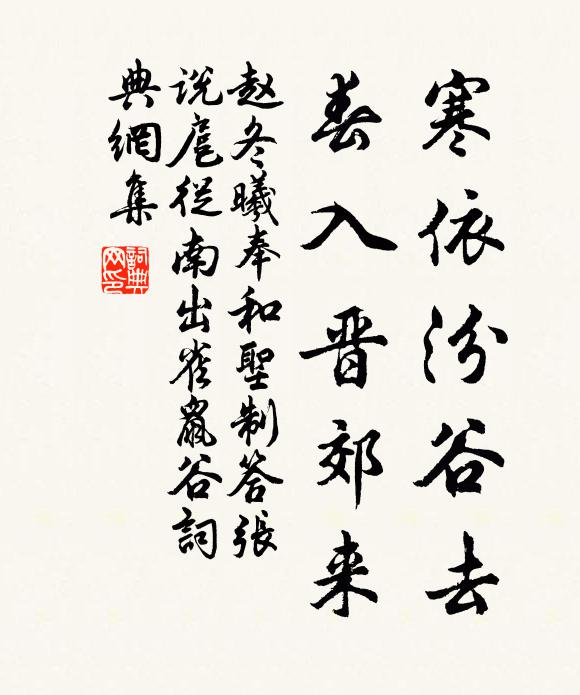 寒依汾谷去
春入晋郊来
赵冬曦奉和聖制答張
说扈從南出雀鼠谷詞
典網集
詞典
网印